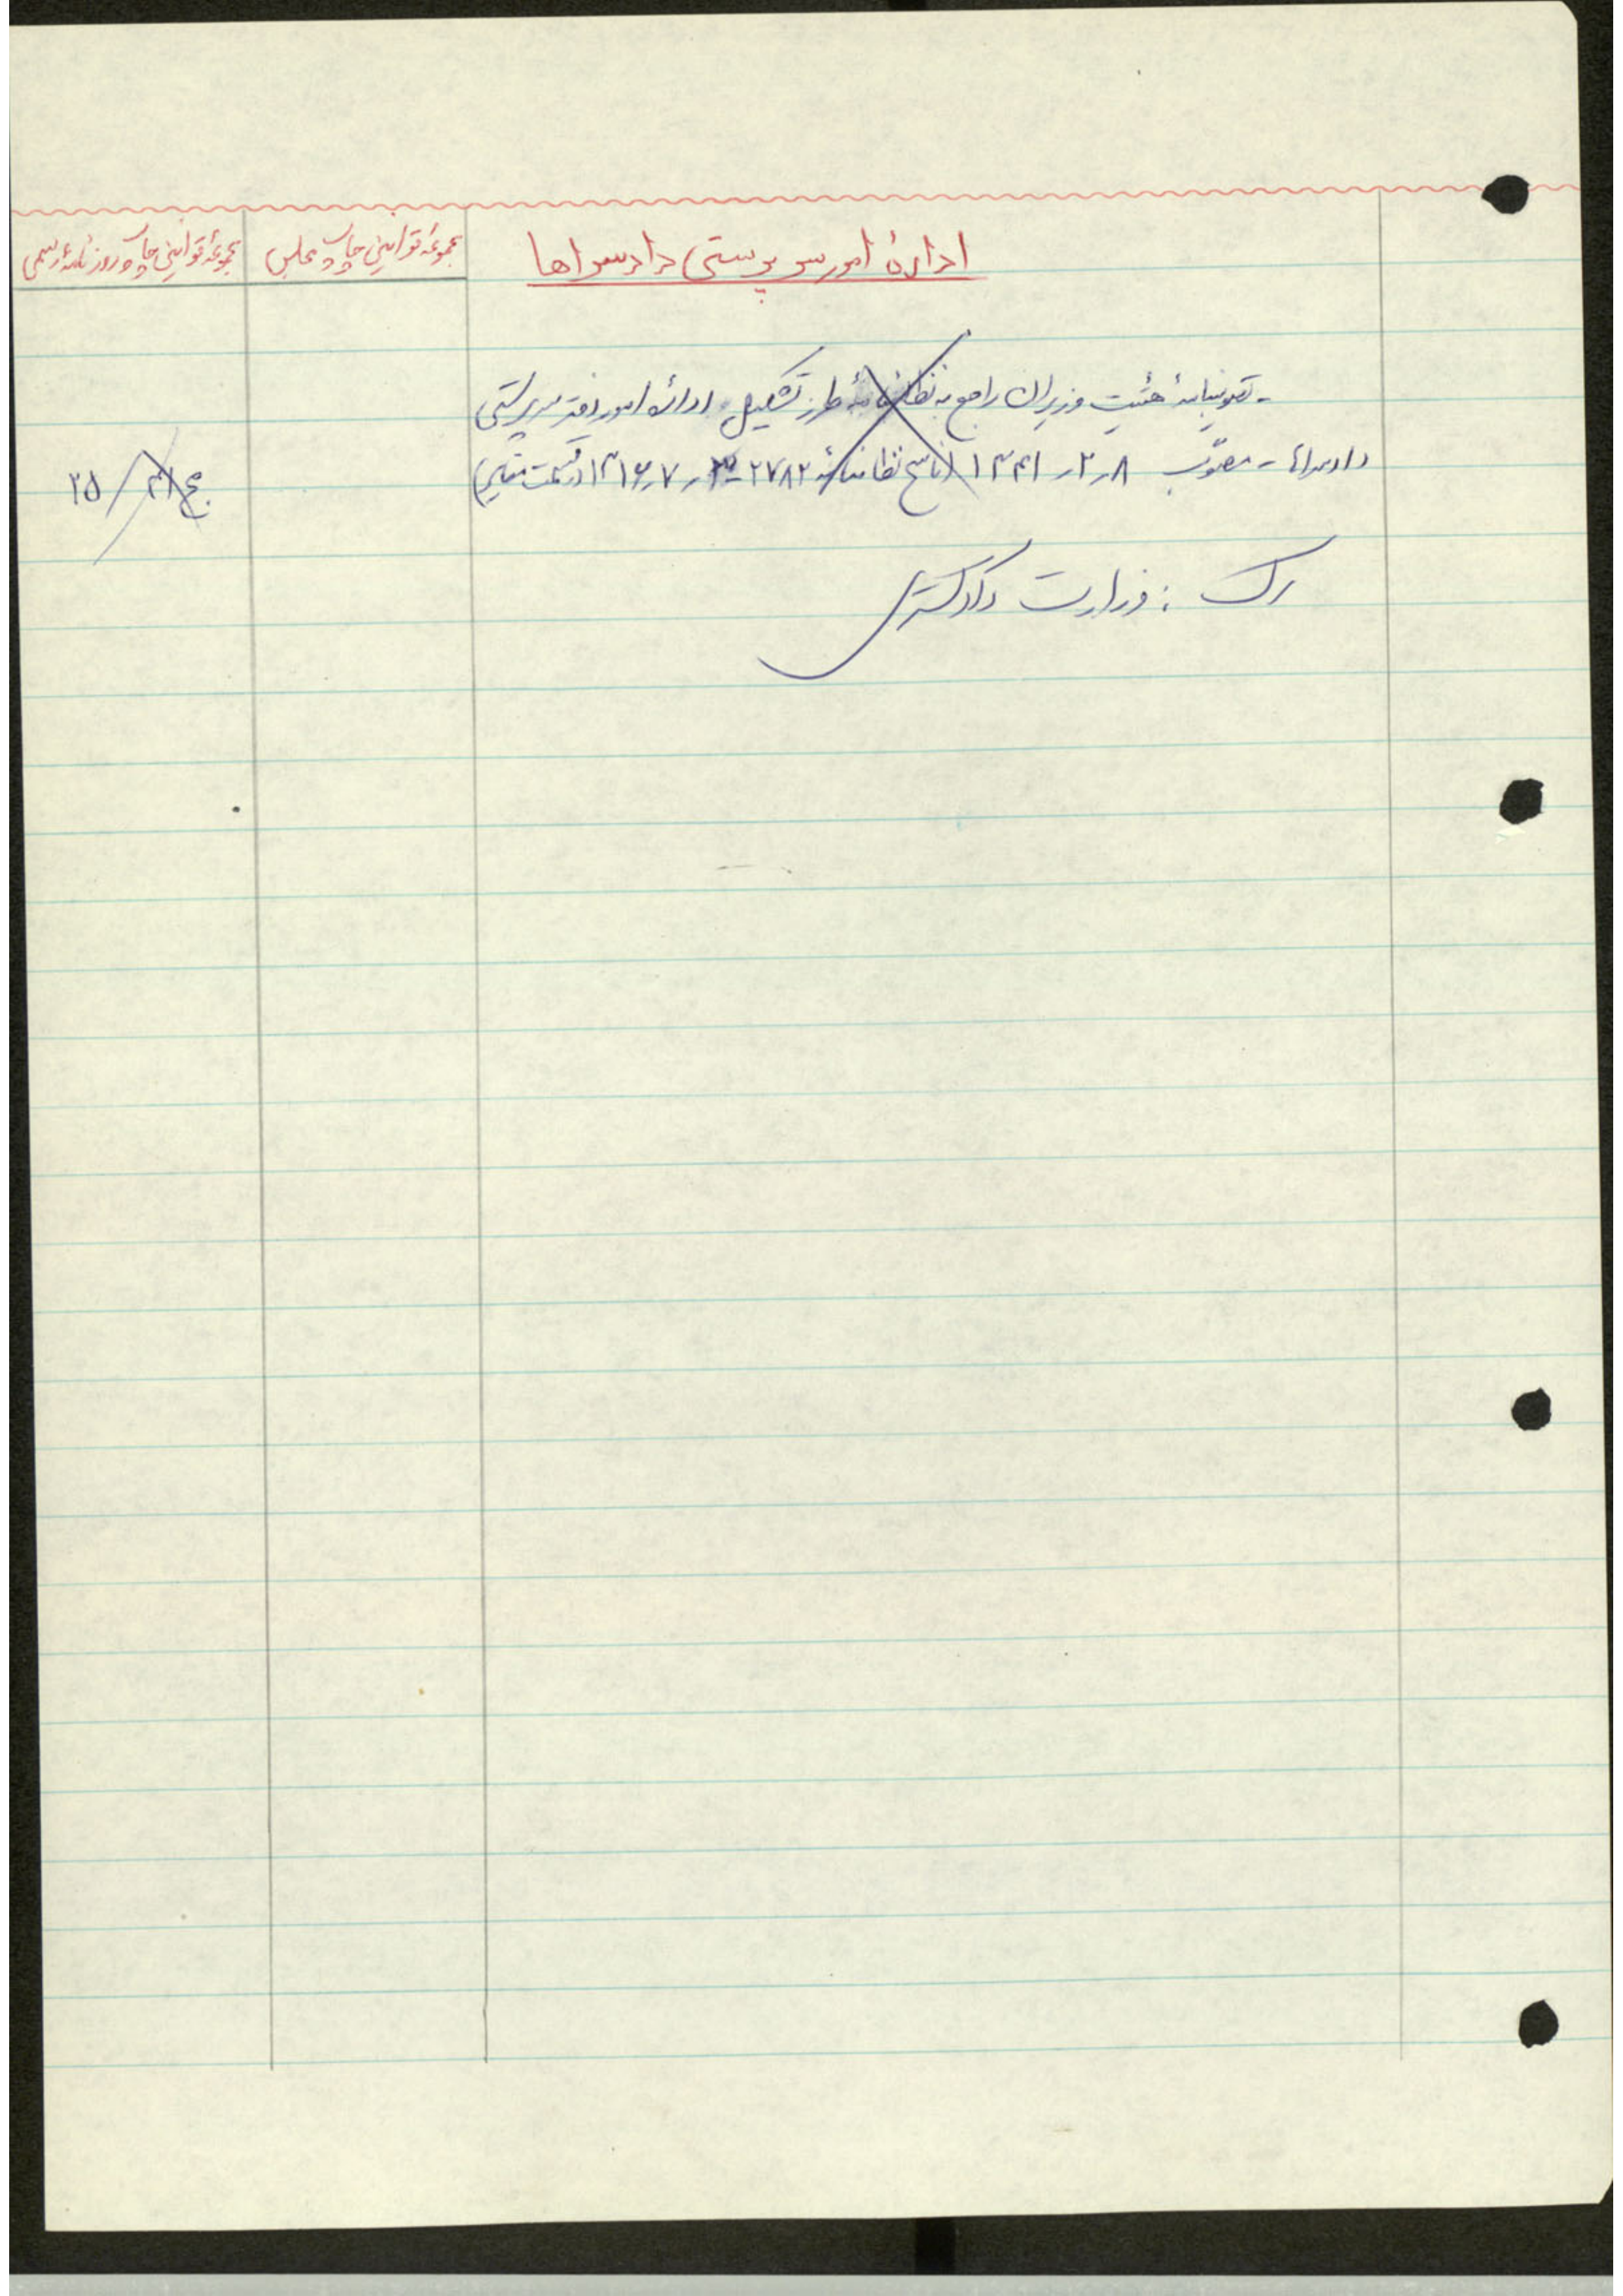 ادارهٔ امور سرپرستی دادسراها
مجموعهٔ قوانین چاپ مجلس
مجموعهٔ قوانین چاپ روزنامهٔ رسمی
- تصویبنامهٔ هئیت وزیران راجع به نظامنامهٔ طرز تشکیل ادارهٔ امور دفتر سرپرستی
دادسراها - مصوّب ۸ر۲ر۱۳۴۱ (ناسخ نظامنامهٔ ۲۷۸۲۰ ۱۳۱۶ر۷ر در قسمت
مج ۴۱ / ۲۵
رک : وزارت دادگستری